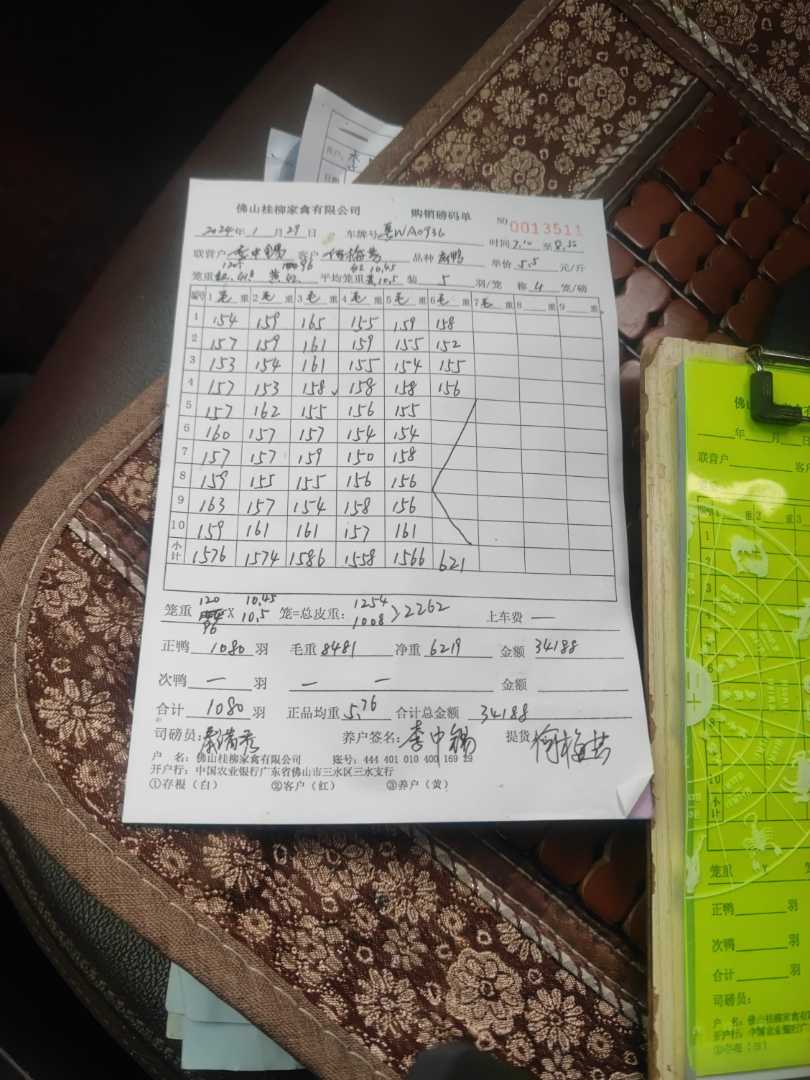 佛山桂柳家禽有限公司 购销磅码单 NO 0013511
2024年1月29日 车牌号 WA093G 时间7.10至8.30
联营户 李中锡 客户 何梅芳 品种 麻鸭 单价 5.5 元/斤
笼重 平均笼重 10.45 10.5 装 5 羽/笼 称 4 笼/磅
编号 1毛重 2毛重 3毛重 4毛重 5毛重 6毛重 7毛重 8 重 9 重
1 154 159 165 155 159 158
2 157 159 161 159 155 152
3 153 154 161 155 154 155
4 157 153 158 158 158 156
5 157 162 155 156 155
6 160 157 157 154 154
7 157 157 159 150 158
8 159 155 155 156 156
9 163 157 154 158 156
10 159 161 161 157 161
小计 1576 1574 1586 1558 1566 621
120 10.45 1254
笼重 X 10.5 笼=总皮重: 1008 >2262 上车费 —
96
正鸭 1080 羽 毛重 8481 净重 6219 金额 34188
次鸭 — 羽 — — 金额
合计 1080 羽 正品均重 5.76 合计总金额 34188
司磅员: 养户签名: 李中锡 提货 何梅芳
户 名: 佛山桂柳家禽有限公司 账号: 444 401 010 400 169 29
开户行: 中国农业银行广东省佛山市三水区三水支行
①存根（白） ②客户（红） ③养户（黄）
佛
年 月 日
联营户 客户
编号 1 重 2 重 3
1
2
3
6
10
小计
笼重 X
正鸭 羽
次鸭 羽
合计 羽
司磅员:
户 名: 佛山桂柳家禽有限
开户行: 中国农业银行广